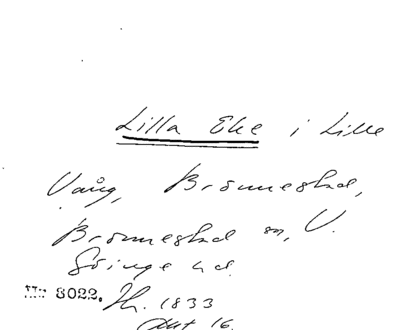 Lilla Eke i Lille
Vång, Brönnestad,
Brönnestad sn, V.
Göinge hd.
Nr 8022. Jh. 1833
Akt 16.